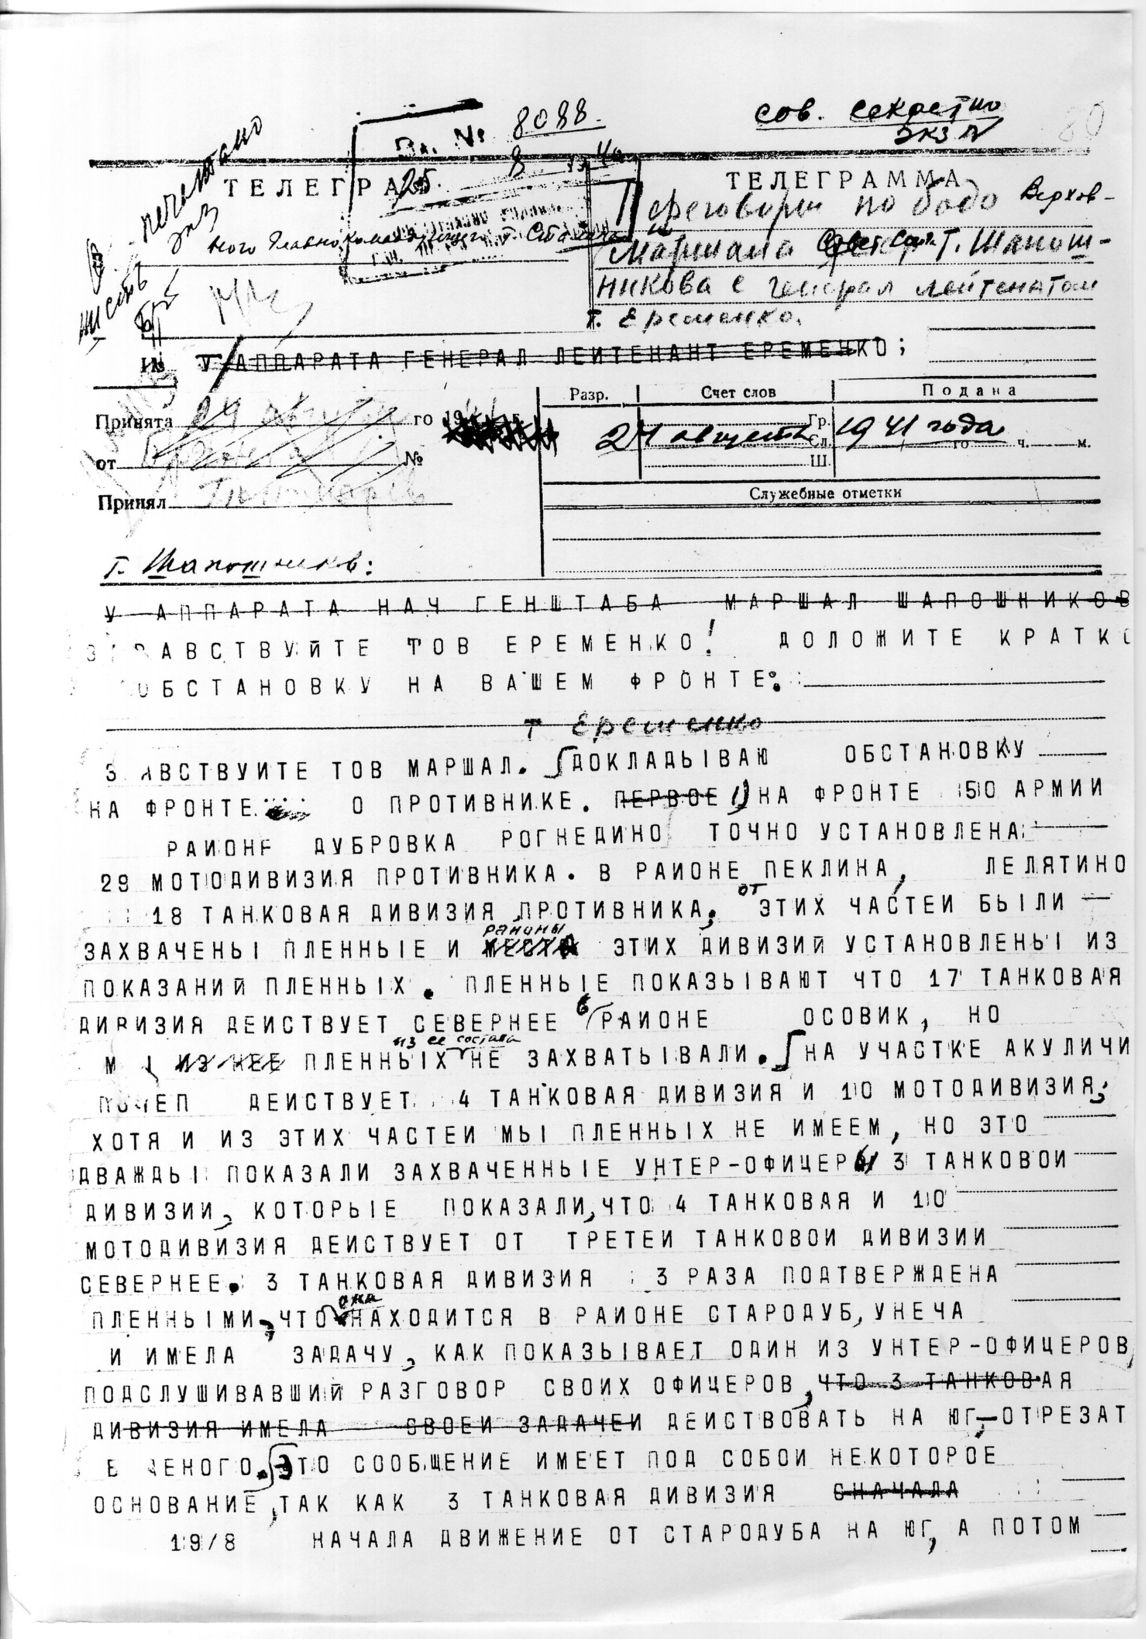 сов. секретно
экз №
80
Вх. № 8088
25. 8
отпечатано
шесть экз
ТЕЛЕГРА
ТЕЛЕГРАММА
Переговоры по бодо Верхов-
ного Главнокомандующего т. Сталина
Маршала Совет Союз. Т. Шапош-
никова с генерал лейтенатом
т. Еременко.
№ У АППАРАТА ГЕНЕРАЛ ЛЕИТЕНАНТ ЕРЕМЕНКО;
Разр. Счет слов Подана
Принята 24 августа го 19 г.
24 августа Гр. 1941 года
Сл. го ч. м.
от №
Ш.
Принял
Служебные отметки
т. Шапошников:
У АППАРАТА НАЧ ГЕНШТАБА МАРШАЛ ШАПОШНИКОВ
АВСТВУЙТЕ ТОВ ЕРЕМЕНКО! ДОЛОЖИТЕ КРАТКО
ОБСТАНОВКУ НА ВАШЕМ ФРОНТЕ:
т Еременко
З АВСТВУИТЕ ТОВ МАРШАЛ. ДОКЛАДЫВАЮ ОБСТАНОВКУ
НА ФРОНТЕ О ПРОТИВНИКЕ. ПЕРВОЕ 1) НА ФРОНТЕ 50 АРМИИ
РАИОНЕ ДУБРОВКА РОГНЕДИНО ТОЧНО УСТАНОВЛЕНА
29 МОТОДИВИЗИЯ ПРОТИВНИКА. В РАИОНЕ ПЕКЛИНА, ЛЕЛЯТИНО
18 ТАНКОВАЯ ДИВИЗИЯ ПРОТИВНИКА, от ЭТИХ ЧАСТЕИ БЫЛИ
ЗАХВАЧЕНЫ ПЛЕННЫЕ И МЕСТА районы ЭТИХ ДИВИЗИЙ УСТАНОВЛЕНЫ ИЗ
ПОКАЗАНИЙ ПЛЕННЫХ. ПЛЕННЫЕ ПОКАЗЫВАЮТ ЧТО 17 ТАНКОВАЯ
ДИВИЗИЯ ДЕИСТВУЕТ СЕВЕРНЕЕ в РАИОНЕ ОСОВИК, НО
М ИЗ НЕЕ ПЛЕННЫХ из ее состава НЕ ЗАХВАТЫВАЛИ. НА УЧАСТКЕ АКУЛИЧИ
ПОЧЕП ДЕИСТВУЕТ 4 ТАНКОВАЯ ДИВИЗИЯ И 10 МОТОДИВИЗИЯ;
ХОТЯ И ИЗ ЭТИХ ЧАСТЕИ МЫ ПЛЕННЫХ НЕ ИМЕЕМ, НО ЭТО
ДВАЖДЫ ПОКАЗАЛИ ЗАХВАЧЕННЫЕ УНТЕР-ОФИЦЕРЫ 3 ТАНКОВОИ
ДИВИЗИИ, КОТОРЫЕ ПОКАЗАЛИ, ЧТО 4 ТАНКОВАЯ И 10
МОТОДИВИЗИЯ ДЕИСТВУЕТ ОТ ТРЕТЕИ ТАНКОВОИ ДИВИЗИИ
СЕВЕРНЕЕ. 3 ТАНКОВАЯ ДИВИЗИЯ 3 РАЗА ПОДТВЕРЖДЕНА
ПЛЕННЫМИ, ЧТО она НАХОДИТСЯ В РАИОНЕ СТАРОДУБ, УНЕЧА
И ИМЕЛА ЗАДАЧУ, КАК ПОКАЗЫВАЕТ ОДИН ИЗ УНТЕР-ОФИЦЕРОВ,
ПОДСЛУШИВАВШИЙ РАЗГОВОР СВОИХ ОФИЦЕРОВ, ЧТО 3 ТАНКОВАЯ
ДИВИЗИЯ ИМЕЛА СВОЕИ ЗАДАЧЕИ ДЕИСТВОВАТЬ НА ЮГ,-ОТРЕЗАТ
ЕНОГО. ЭТО СООБЩЕНИЕ ИМЕЕТ ПОД СОБОИ НЕКОТОРОЕ
ОСНОВАНИЕ, ТАК КАК 3 ТАНКОВАЯ ДИВИЗИЯ СНАЧАЛА
19/8 НАЧАЛА ДВИЖЕНИЕ ОТ СТАРОДУБА НА ЮГ, А ПОТОМ